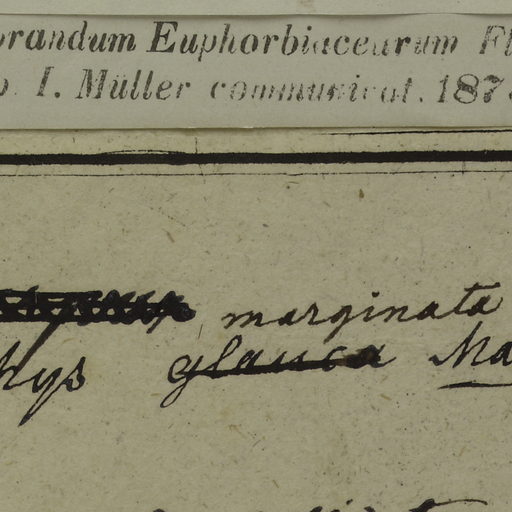 orandum Euphorbiacearum Fl
o. I. Müller communicat. 187
marginata
hys glauca Ma